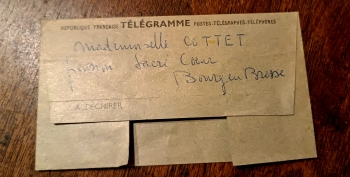 RÉPUBLIQUE FRANÇAISE TÉLÉGRAMME POSTES-TÉLÉGRAPHES-TÉLÉPHONES
Mademoiselle COTTET
Sacré Cœur
Bourg en Bresse
A DÉCHIRER